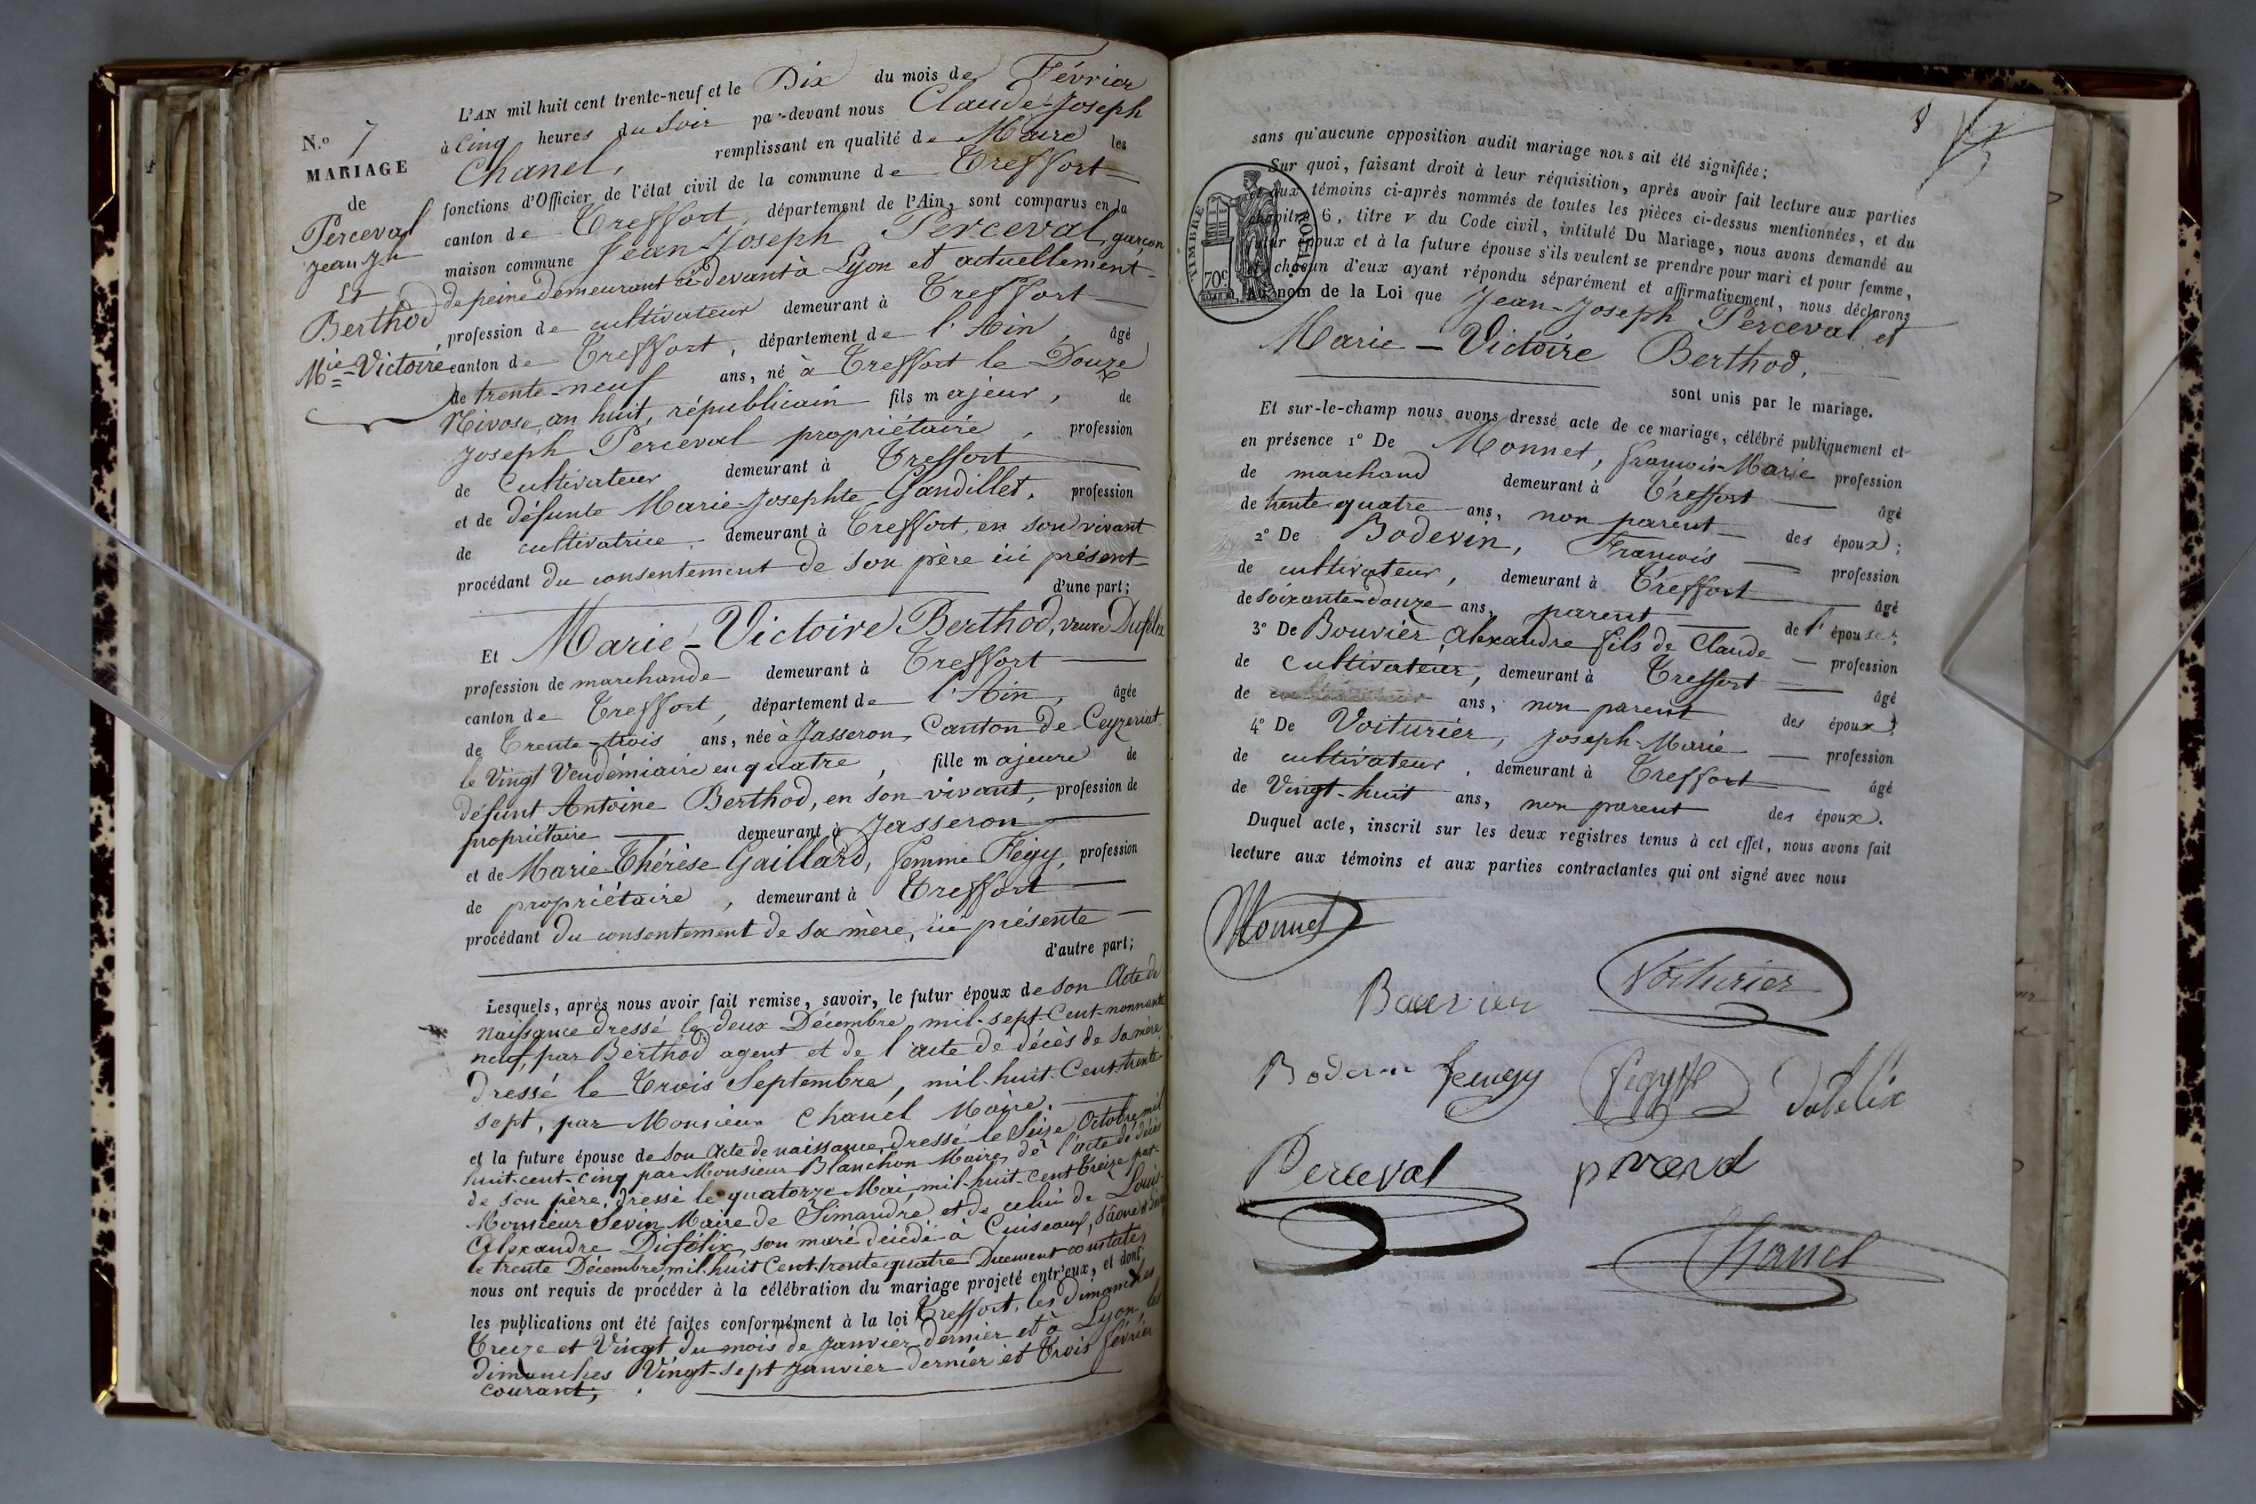 N.o 7
MARIAGE
de
Perceval
Jean Jh
Et
Berthod
Mie Victoire
L'AN mil huit cent trente-neuf et le Dix du mois de Février
à Cinq heures du Soir par-devant nous Claude-Joseph
Chanel, remplissant en qualité de Maire les
fonctions d'Officier de l'état civil de la commune de Treffort
canton de Treffort, département de l'Ain, sont comparus en la
maison commune Jean-Joseph Perceval, garçon
de peine demeurant ci-devant à Lyon et actuellement
profession de cultivateur demeurant à Treffort
canton de Treffort, département de l'Ain, âgé
de trente-neuf ans, né à Treffort le Douze
Nivose, an huit, républicain fils majeur, de
Joseph Perceval propriétaire, profession
de Cultivateur demeurant à Treffort
et de défunte Marie-Josephte Gandillet, profession
de cultivatrice, demeurant à Treffort, en son vivant
procédant du consentement de son père ici présent
d'une part;
Et Marie-Victoire Berthod, veuve
profession de marchande demeurant à Treffort
canton de Treffort, département de l'Ain, âgée
de Trente-trois ans, née à Jasseron, Canton de Ceyzeriat
le Vingt Vendémiaire en quatre, fille majeure de
défunt Antoine Berthod, en son vivant, profession de
propriétaire demeurant à Jasseron
et de Marie Thérèse Gaillard, femme Fégy, profession
de propriétaire, demeurant à Treffort
procédant du consentement de sa mère, ici présente
d'autre part;
Lesquels, après nous avoir fait remise, savoir, le futur époux de son Acte de
Naissance dressé le deux Décembre, mil-sept-Cent-nonnante
neuf, par Berthod agent et de l'acte de décès de sa mère
dressé le Trois Septembre, mil-huit-Cent-trente-
sept, par Monsieur Chanel Maire.
et la future épouse de son Acte de naissance dressé le Seize Octobre mil
huit-cent-cinq par Monsieur Blanchon Maire, de l'acte de décès
de son père, dressé le quatorze Mai, mil-huit-cent treize par
Monsieur Sevin Maire de Simandre et de celui de Louis-
Alexandre son mari décédé à Cuiseaux, Sâone &
le trente Décembre mil-huit Cent-trente quatre Duement constatés
nous ont requis de procéder à la célébration du mariage projeté entr'eux, et dont
les publications ont été faites conformément à la loi Treffort, les dimanches
Treize et Vingt du mois de Janvier dernier et à Lyon, les
dimanches Vingt-sept Janvier dernier et Trois février
courant;
8
sans qu'aucune opposition audit mariage nous ait été signifiée;
Sur quoi, faisant droit à leur réquisition, après avoir fait lecture aux parties
aux témoins ci-après nommés de toutes les pièces ci-dessus mentionnées, et du
chapitre 6, titre V du Code civil, intitulé Du Mariage, nous avons demandé au
futur époux et à la future épouse s'ils veulent se prendre pour mari et pour femme,
et chacun d'eux ayant répondu séparément et affirmativement, nous déclarons
Au nom de la Loi que Jean-Joseph Perceval et
Marie-Victoire Berthod.
sont unis par le mariage.
TIMBRE ROYAL
70c
Et sur-le-champ nous avons dressé acte de ce mariage, célébré publiquement et
en présence 1° De Monnet, françois-Marie profession
de marchand demeurant à Treffort âgé
de trente quatre ans, non parent des époux;
2° De Bodevin, François profession
de cultivateur, demeurant à Treffort âgé
de soixante-douze ans, parent de l'épouse;
3° De Bouvier Alexandre fils de Claude profession
de cultivateur, demeurant à Treffort âgé
de ans, non parent des époux;
4° De Voiturier, Joseph-Marie profession
de cultivateur, demeurant à Treffort âgé
de Vingt-huit ans, non parent des époux.
Duquel acte, inscrit sur les deux registres tenus à cet effet, nous avons fait
lecture aux témoins et aux parties contractantes qui ont signé avec nous
Monnet
Bouvier Voiturier
Bodevin
Perceval
Chanel